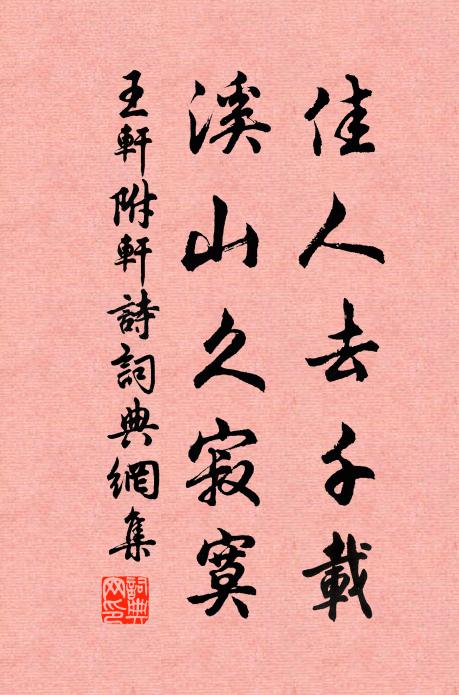 佳人去千載
溪山久寂寞
王軒附軒詩詞典網集
詞典網印